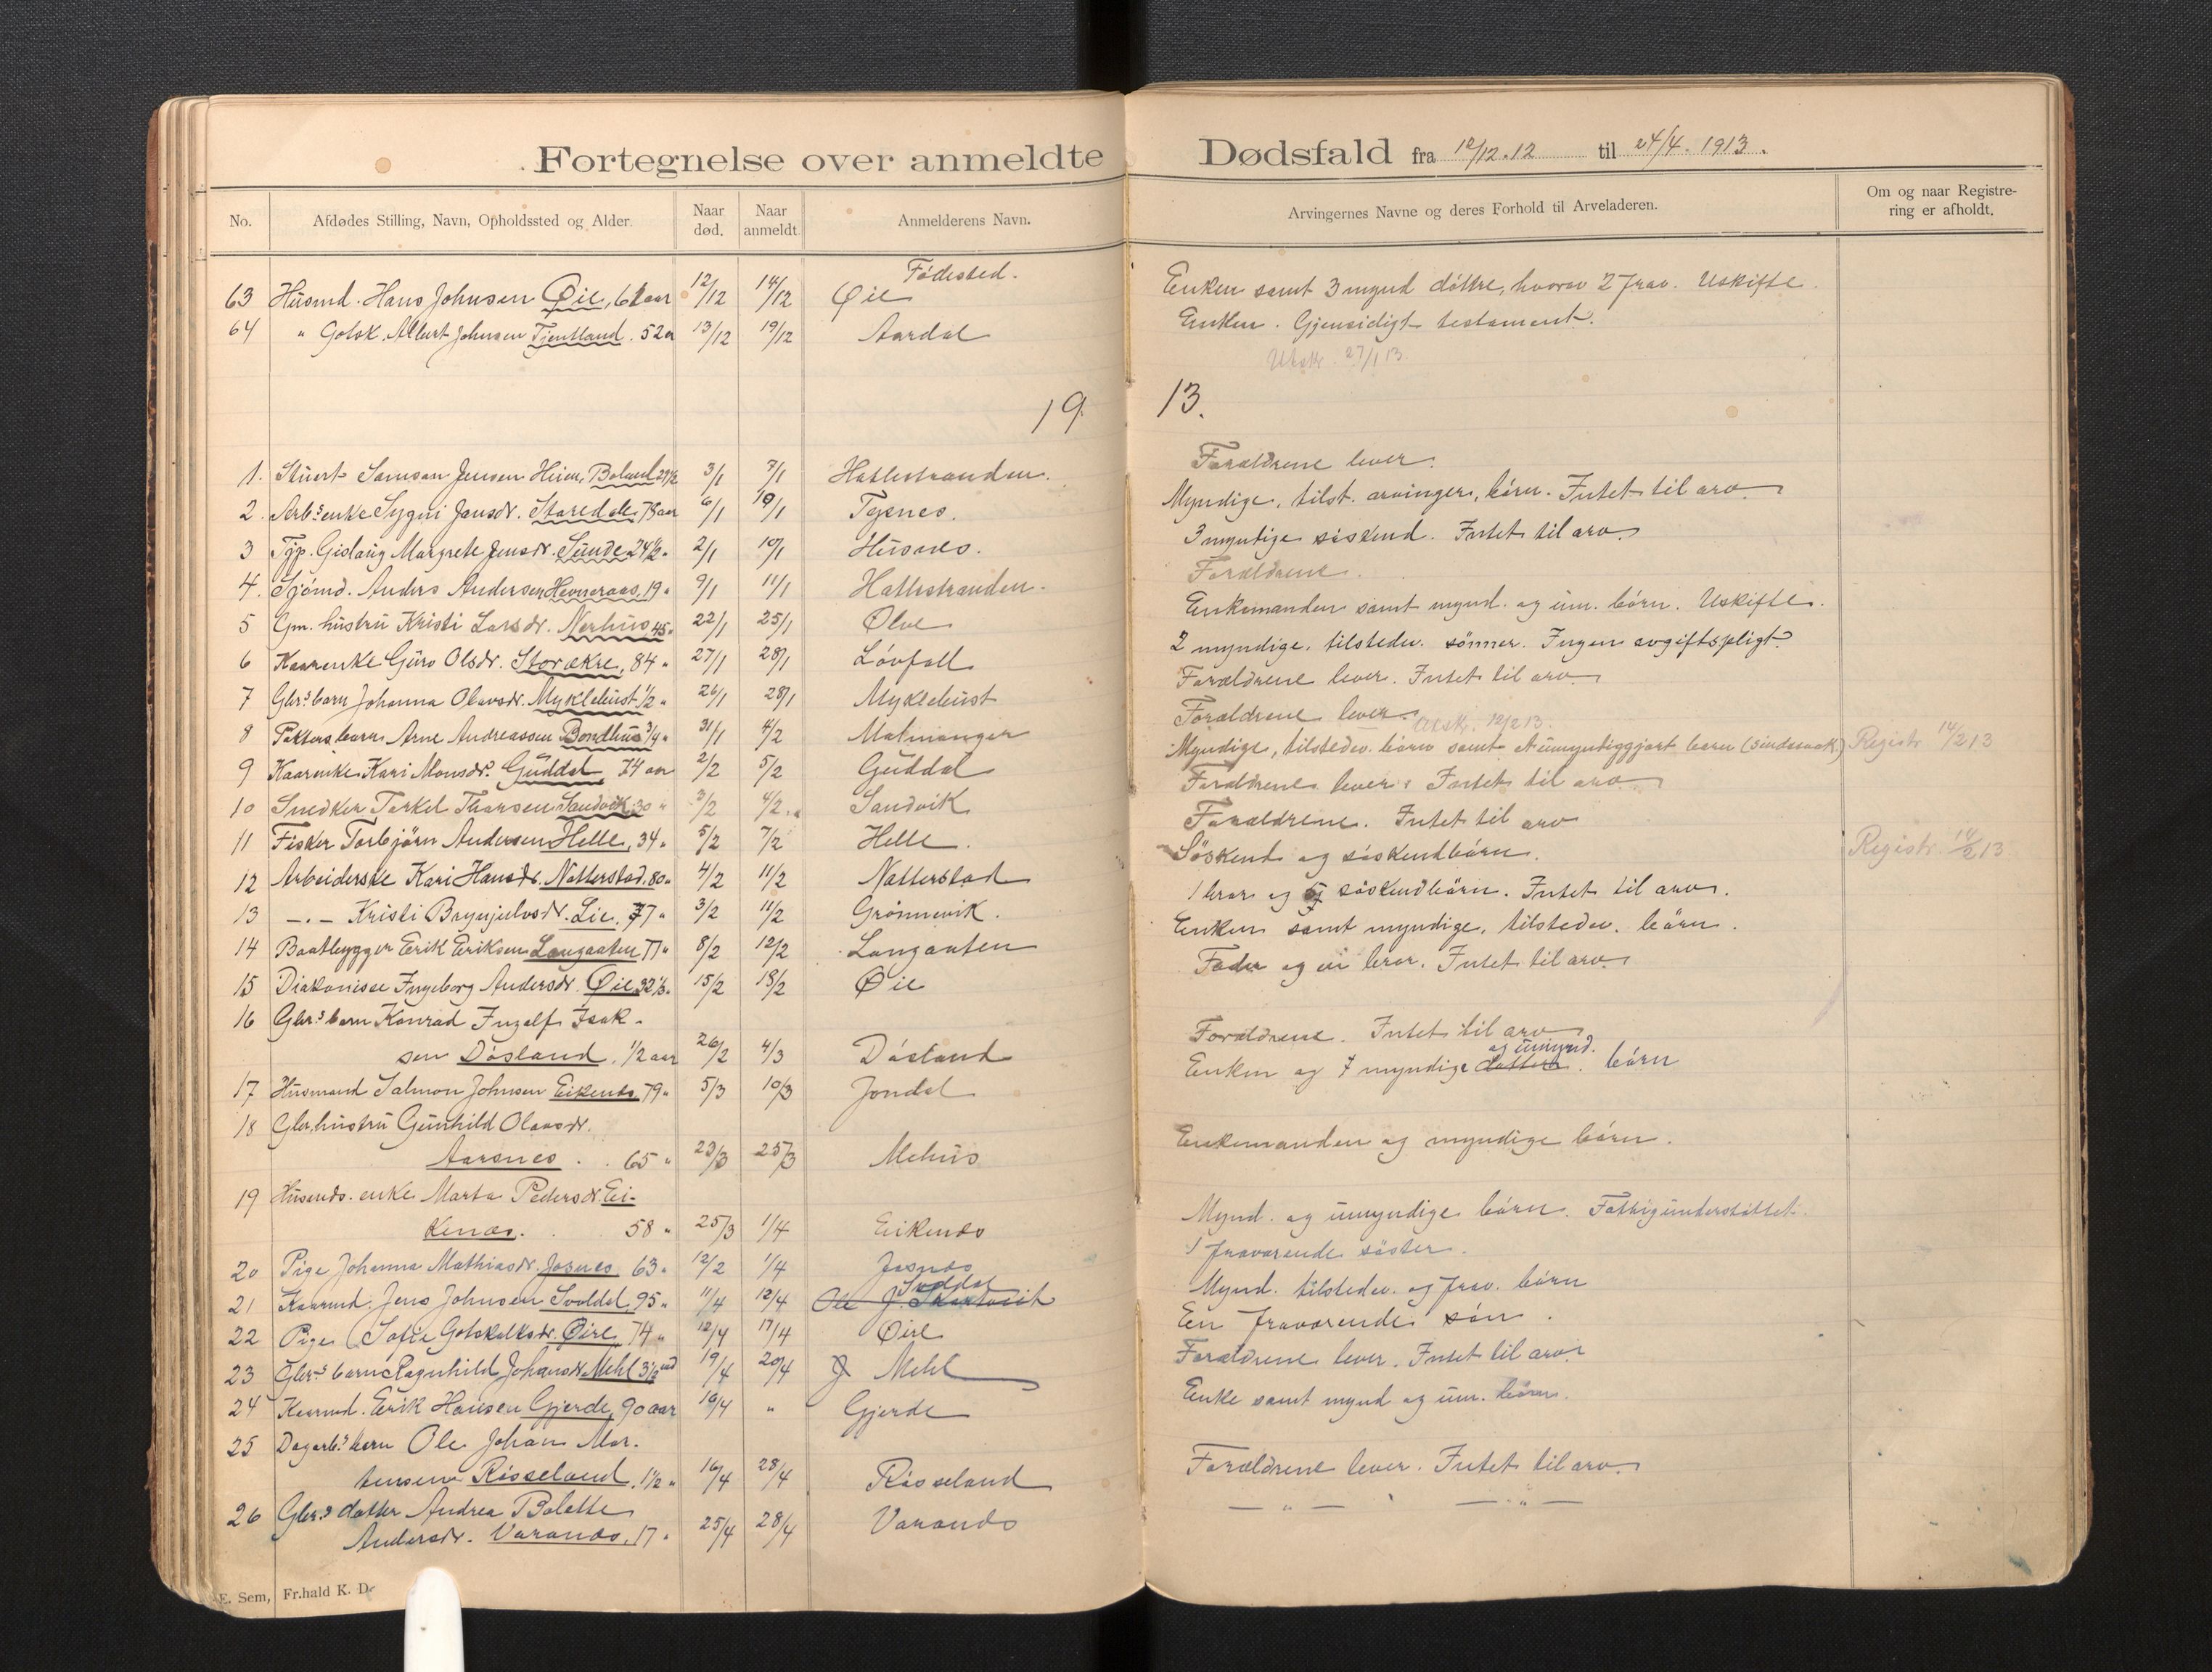 Fortegnelse over anmeldte Dødsfald fra 12/12.12 til 24/4. 1913.
No. Afdødes Stilling, Navn, Opholdssted og Alder. Naar død. Naar anmeldt. Anmelderens Navn. Arvingernes Navne og deres Forhold til Arveladeren. Om og naar Registrering er afholdt.
Födested.
63 Husmd. Hans Johnsen Øie, 61 aar 12/12 14/12 Øie Enken samt 3 mynd döttre, hvorav 2 frav. Uskifte.
64 " Gotsk. Albert Johnsen Tjentland. 52 a 13/12 19/12 Aardal Enken. Gjensidigt testament.
Utskr. 27/1 13.
1913.
1. Stuert Samson Jensen Heien, Boland 29 1/2 3/1 7/1 Hatlestranden. Forældrene lever.
2. Arb.s enke Sygni Jansdr. Staredale, 78 aar 6/1 10/1 Tysnes. Myndige, tilst. arvinger, börn. Intet til arv.
3 Tjp. Gislaug Margrete Jensdr. Sunde 24 1/2 " 2/1 10/1 Husnes. 3 myndige söskend. Intet til arv.
4. Sjömd. Anders Andersen Hevneraas, 19 " 9/1 11/1 Hatlestranden. Forældrene.
5 Gm. hustru Kristi Larsdr. Nerhus 45 " 22/1 25/1 Ølve Enkemanden samt mynd. og um. börn. Uskifte.
6 Kaarenke Guro Olsdr. Storækre, 84 " 27/1 28/1 Lövfall 2 myndige, tilstedev. sönner. Ingen avgiftspligt.
7 Gbr.s barn Johanna Olavsdr. Myklebust 1/2 " 26/1 28/1 Myklebust Forældrene lever. Intet til arv.
8 Pakters barn Arne Andreassen Bondhus 3/4 " 31/1 4/2 Malmanger Forældrene lever.
Utskr. 12/2 13.
9 Kaarenke Kari Monsdr. Guddal, 74 aar 2/2 5/2 Guddal Myndige, tilstedev. börn samt et umyndiggjort barn (sindssvak) Registr. 14/2 13
10 Snedker Torkel Thorsen Sandvik 30 " 3/2 4/2 Sandvik Forældrene lever. Intet til arv.
11 Fisker Torbjörn Andersen Helle, 34 " 5/2 7/2 Helle. Forældrene. Intet til arv
12 Arbeiderske Kari Hansdr. Natterstad. 80 " 4/2 11/2 Natterstad Söskend og söskendbörn. Registr. 14/2 13
13 —"— Kristi Brynjulvsdr. Lie, 77 " 3/2 11/2 Grönnevik. 1 bror og 5 söskendbörn. Intet til arv.
14 Baatbygger Erik Eriksen Langaaten 77 " 8/2 12/2 Langaaten Enken samt myndige, tilstedev. börn.
15 Diakonisse Ingeborg Andersdr. Øie 32 1/2 " 15/2 18/2 Øie Fader og en bror. Intet til arv.
16 Gbr.s barn Konrad Ingolf Isak-
sen Dösland, 1/2 aar 26/2 4/3 Dösland Forældrene. Intet til arv
17 Husmand Salmon Johnsen Eikenes 79 " 5/3 10/3 Jondal Enken og 7 myndige døttre og umynd. börn
18 Gbr. hustru Gunhild Olavsdr.
Aarsnes. 65 " 23/3 25/3 Mehus Enkemanden og myndige börn.
19 Husmds. enke Marta Pedersdr. Ei-
kenæs. 58 " 25/3 1/4 Eikenes Mynd. og umyndige börn. Fattigunderstöttet.
20 Pige Johanna Mathiasdr. Josnes 63 " 12/2 1/4 Josnes 1 fraværende söster.
21 Kaarmd. Jens Johnsen Svoldal, 95 " 11/4 12/4 Ole J. Svoldal Mynd. tilstedev. og frav. börn
22 Pige Sofie Gotskalksdr. Øire 74 " 12/4 17/4 Øire En fraværende sön.
23 Gbr.s barn Ragnhild Johansdr. Mehl 3 1/2 md 19/4 20/4 Mehl Forældrene lever. Intet til arv.
24 Kaarmd. Erik Hansen Gjerde, 90 aar 16/4 " Gjerde Enke samt mynd og um. börn.
25 Dagarb.s barn Ole Johan Mar-
tensen Rösseland, 1 1/2 " 16/4 28/4 Rösseland Forældrene lever. Intet til arv.
26 Gbr.s datter Andrea Bolette
Andersdr. Varands, 17 " 25/4 28/4 Varands — " — — " —
E. Sem, Fr.hald K. D